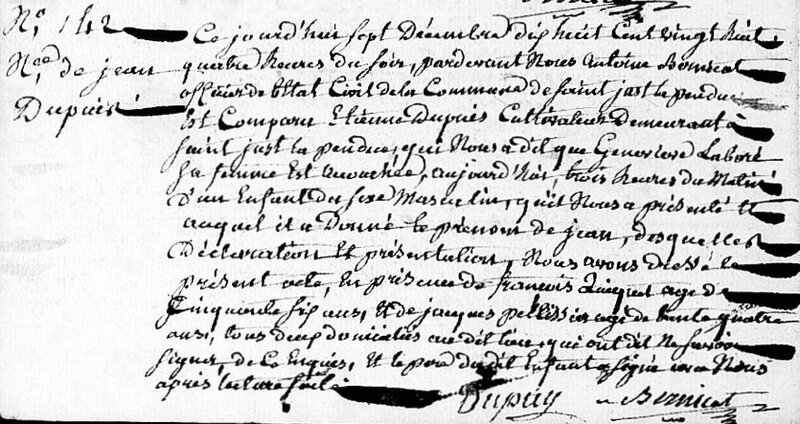 N.° 142
N.ce de jean
Dupuis
Ce jourd'huit sept Décembre dix huit Cent vingt huit
quatre heures du soir, pardevant Nous Antoine Bernicat
officier de l'état Civil de la Commune de saint just la pendue
Est Comparu Etienne Dupuis Cultivateur Demeurant à
saint just la pendue, qui Nous a dit que Genevieve Laboré
sa femme Est accouchée, aujourd'hui, trois heures du Matin
D'un Enfant du sexe Masculin, qu'il Nous a présenté Et
auquel il a Donné le prénom de jean, desquelles
Déclaration Et présentation, Nous avons dressé le
présent acte, En présence de françois age de
Cinquante six ans, Et de jacques pellissier age de trente quatre
ans, tous deux domiciliés au dit lieu, qui ont dit ne savoir
signer, de Ce Enquis, Et le pere dudit Enfant a signé avec Nous
après lecture faite
Dupuy Bernicat